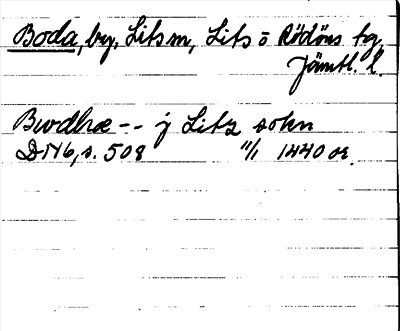 Boda, by, Lits sn, Lits o Rödöns tg,
Jämtl. l.
Bwdhæ -- j Litz sokn
DN 16, s. 508 11/1 1440 or.